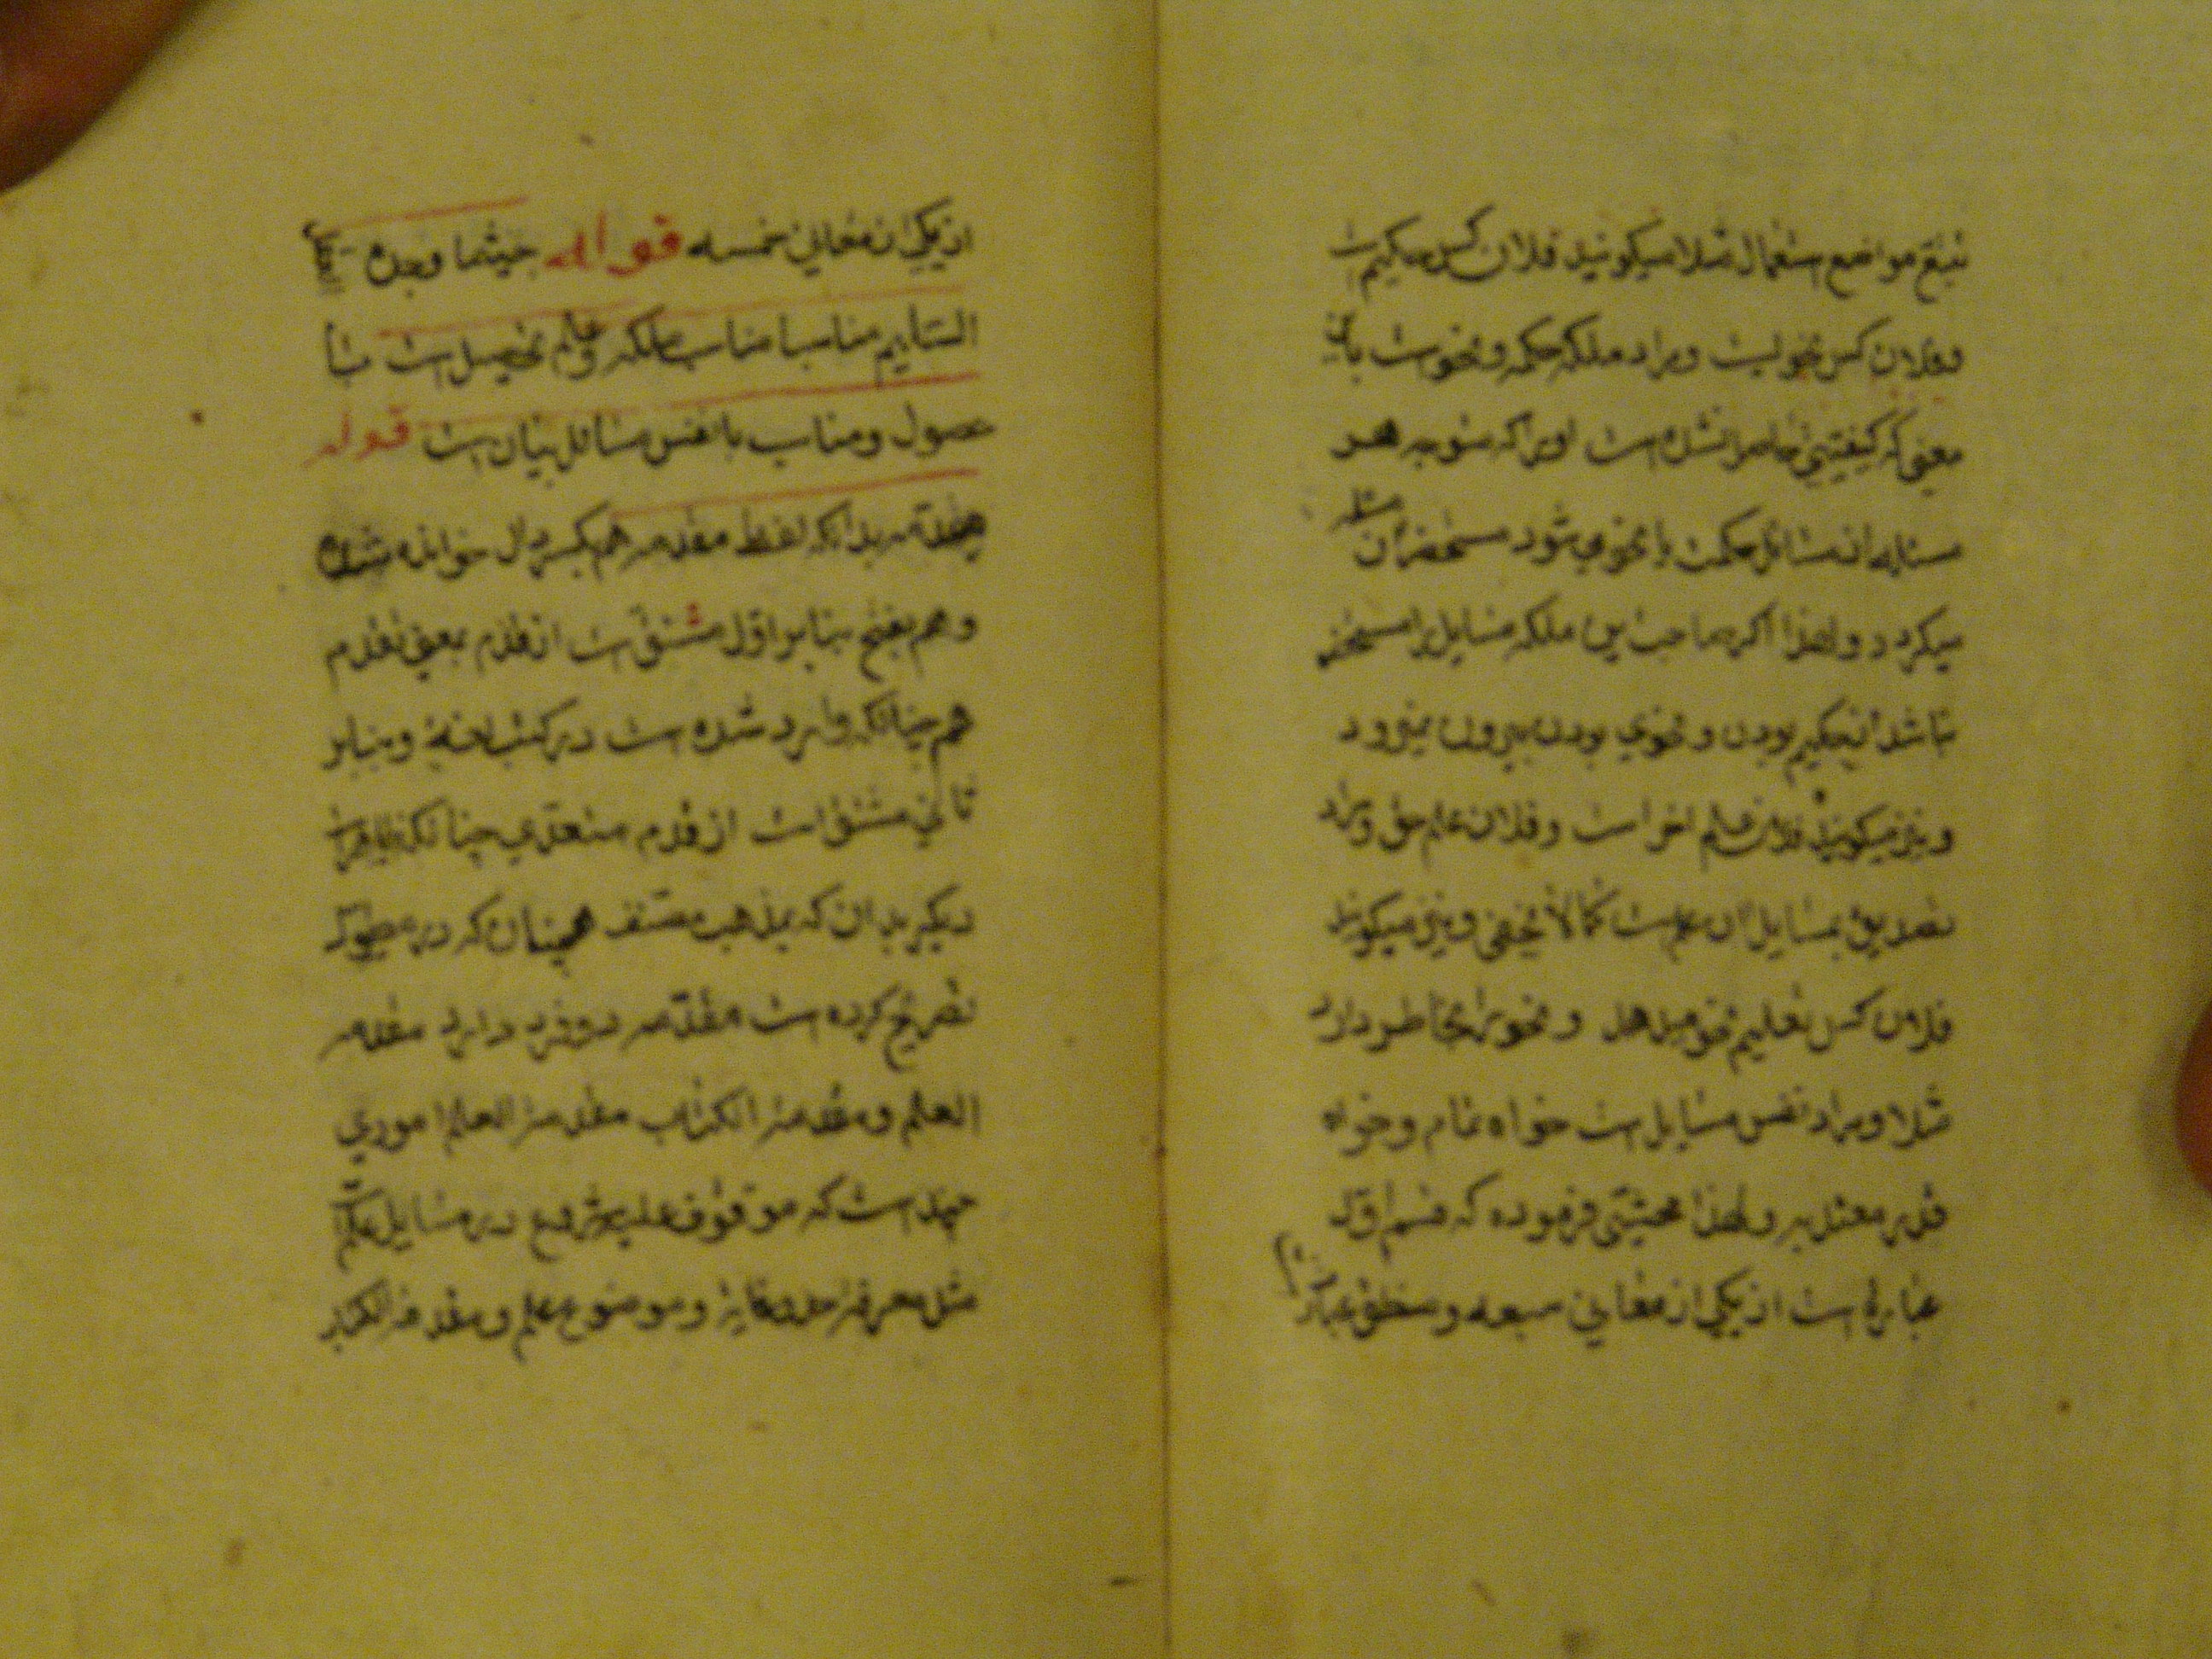 تتبع مواضع استعمال مثلا میکویند فلان کس حکیم است
وفلان کس نحویست ومراد ملکه حکمه ونحوست باین
معنی که کیفیتی حاصل شده است اورا که متوجه هر
مسئله از مسائل حکمت یا نحوی شود مستحضر آن مسئله
میکردد ولهذا اکر صاحب این ملکه مسایل را مستحضر
نباشد از حکیم بودن ونحوی بودن بیرون نمیرود
ونیز میکویند فلان علم اخر است وفلان علم حق ومراد
تصدیق بمسایل ان علمست کما لا یخفی ونیز میکویند
فلان کس تعلیم نحو میدهد ونحو را بخاطر دارد
مثلا ومراد نفس مسایل است خواه تمام وخواه
قدر معتد به ولهذا محشی فرموده که قسم اول
عبارة است از یکی از معانی سبعه ومنطق عبارت
از یکی از معانی خمسه قوله حیثما وجده العقل
السلیم مناسبا مناسب ملکه وعلم تحصیل است یا
حصول ومناسب با نفس مسائل بیان است قوله
مقدمه بدانکه لفظ مقدمه هم بکسر دال خوانده شده
وهم بفتح بنابر اول مشتق است از قدم بمعنی تقدم
هم چنانکه وارد شده است در کتب لغة وبنابر
ثانی مشتق است از قدم متعدی چنانکه ظاهر است
دیکر بدان که بمذهب مصنف همچنان که در مطول
تصریح کرده است مقدمه دو فرد دارد مقدمه
العلم ومقدمة الکتاب مقدمة العلم اموری
چند است که موقوف علیه شروع در مسایل علم
مثل معرفة حد وغایة وموضوع علم ومقدمة الکتاب